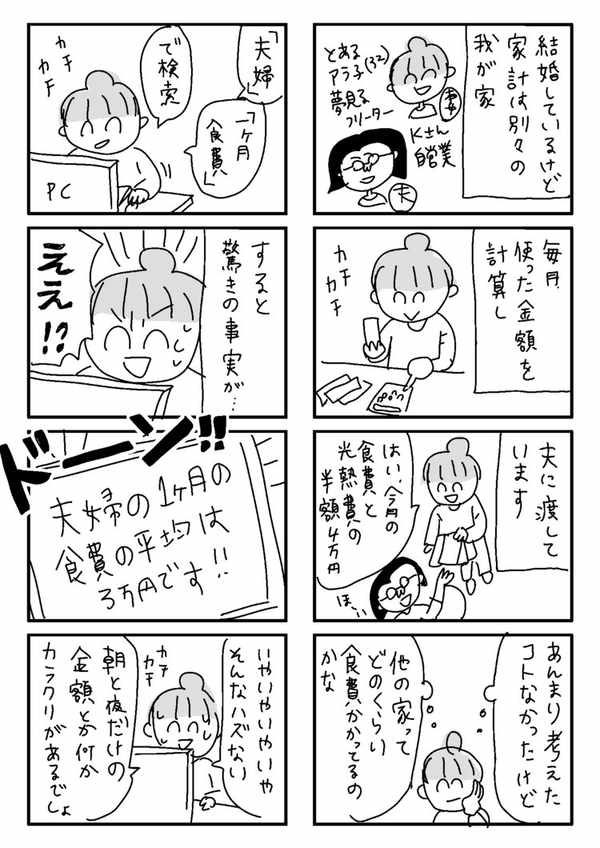 結婚しているけど
家計は別々の
我が家
とある
アラ子(32)
夢見る
フリーター
妻
Kさん
自営業
夫
毎月
使った金額を
計算し
カチ
カチ
夫に渡して
います
はい、今月の
食費と
光熱費の
半額4万円
ほい
あんまり考えた
コトなかったけど
他の家って
どのくらい
食費かかってるの
かな
「夫婦」
「1ヶ月
食費」
で検索
カチ
カチ
PC
すると
驚きの事実が…
ええ!?
ドーン!!
夫婦の1ヶ月の
食費の平均は
3万円です!!
いやいやいやいや
そんなハズない
カチ
カチ
朝と夜だけの
金額とか何か
カラクリがあるでしょ